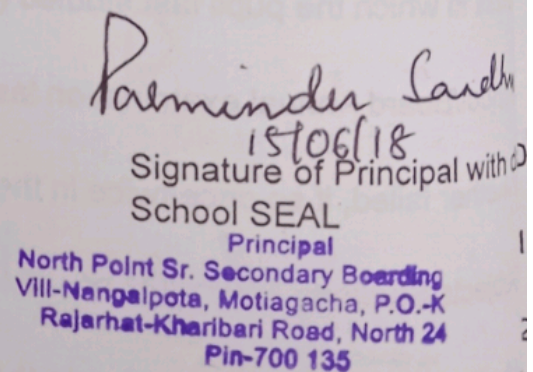 Parminder Sandhu
15/06/18
Signature of Principal with
School SEAL
Principal
North Point Sr. Secondary Boarding
Vill-Nangalpota, Motiagacha, P.O.-K
Rajarhat-Kharibari Road, North 24
Pin-700 135